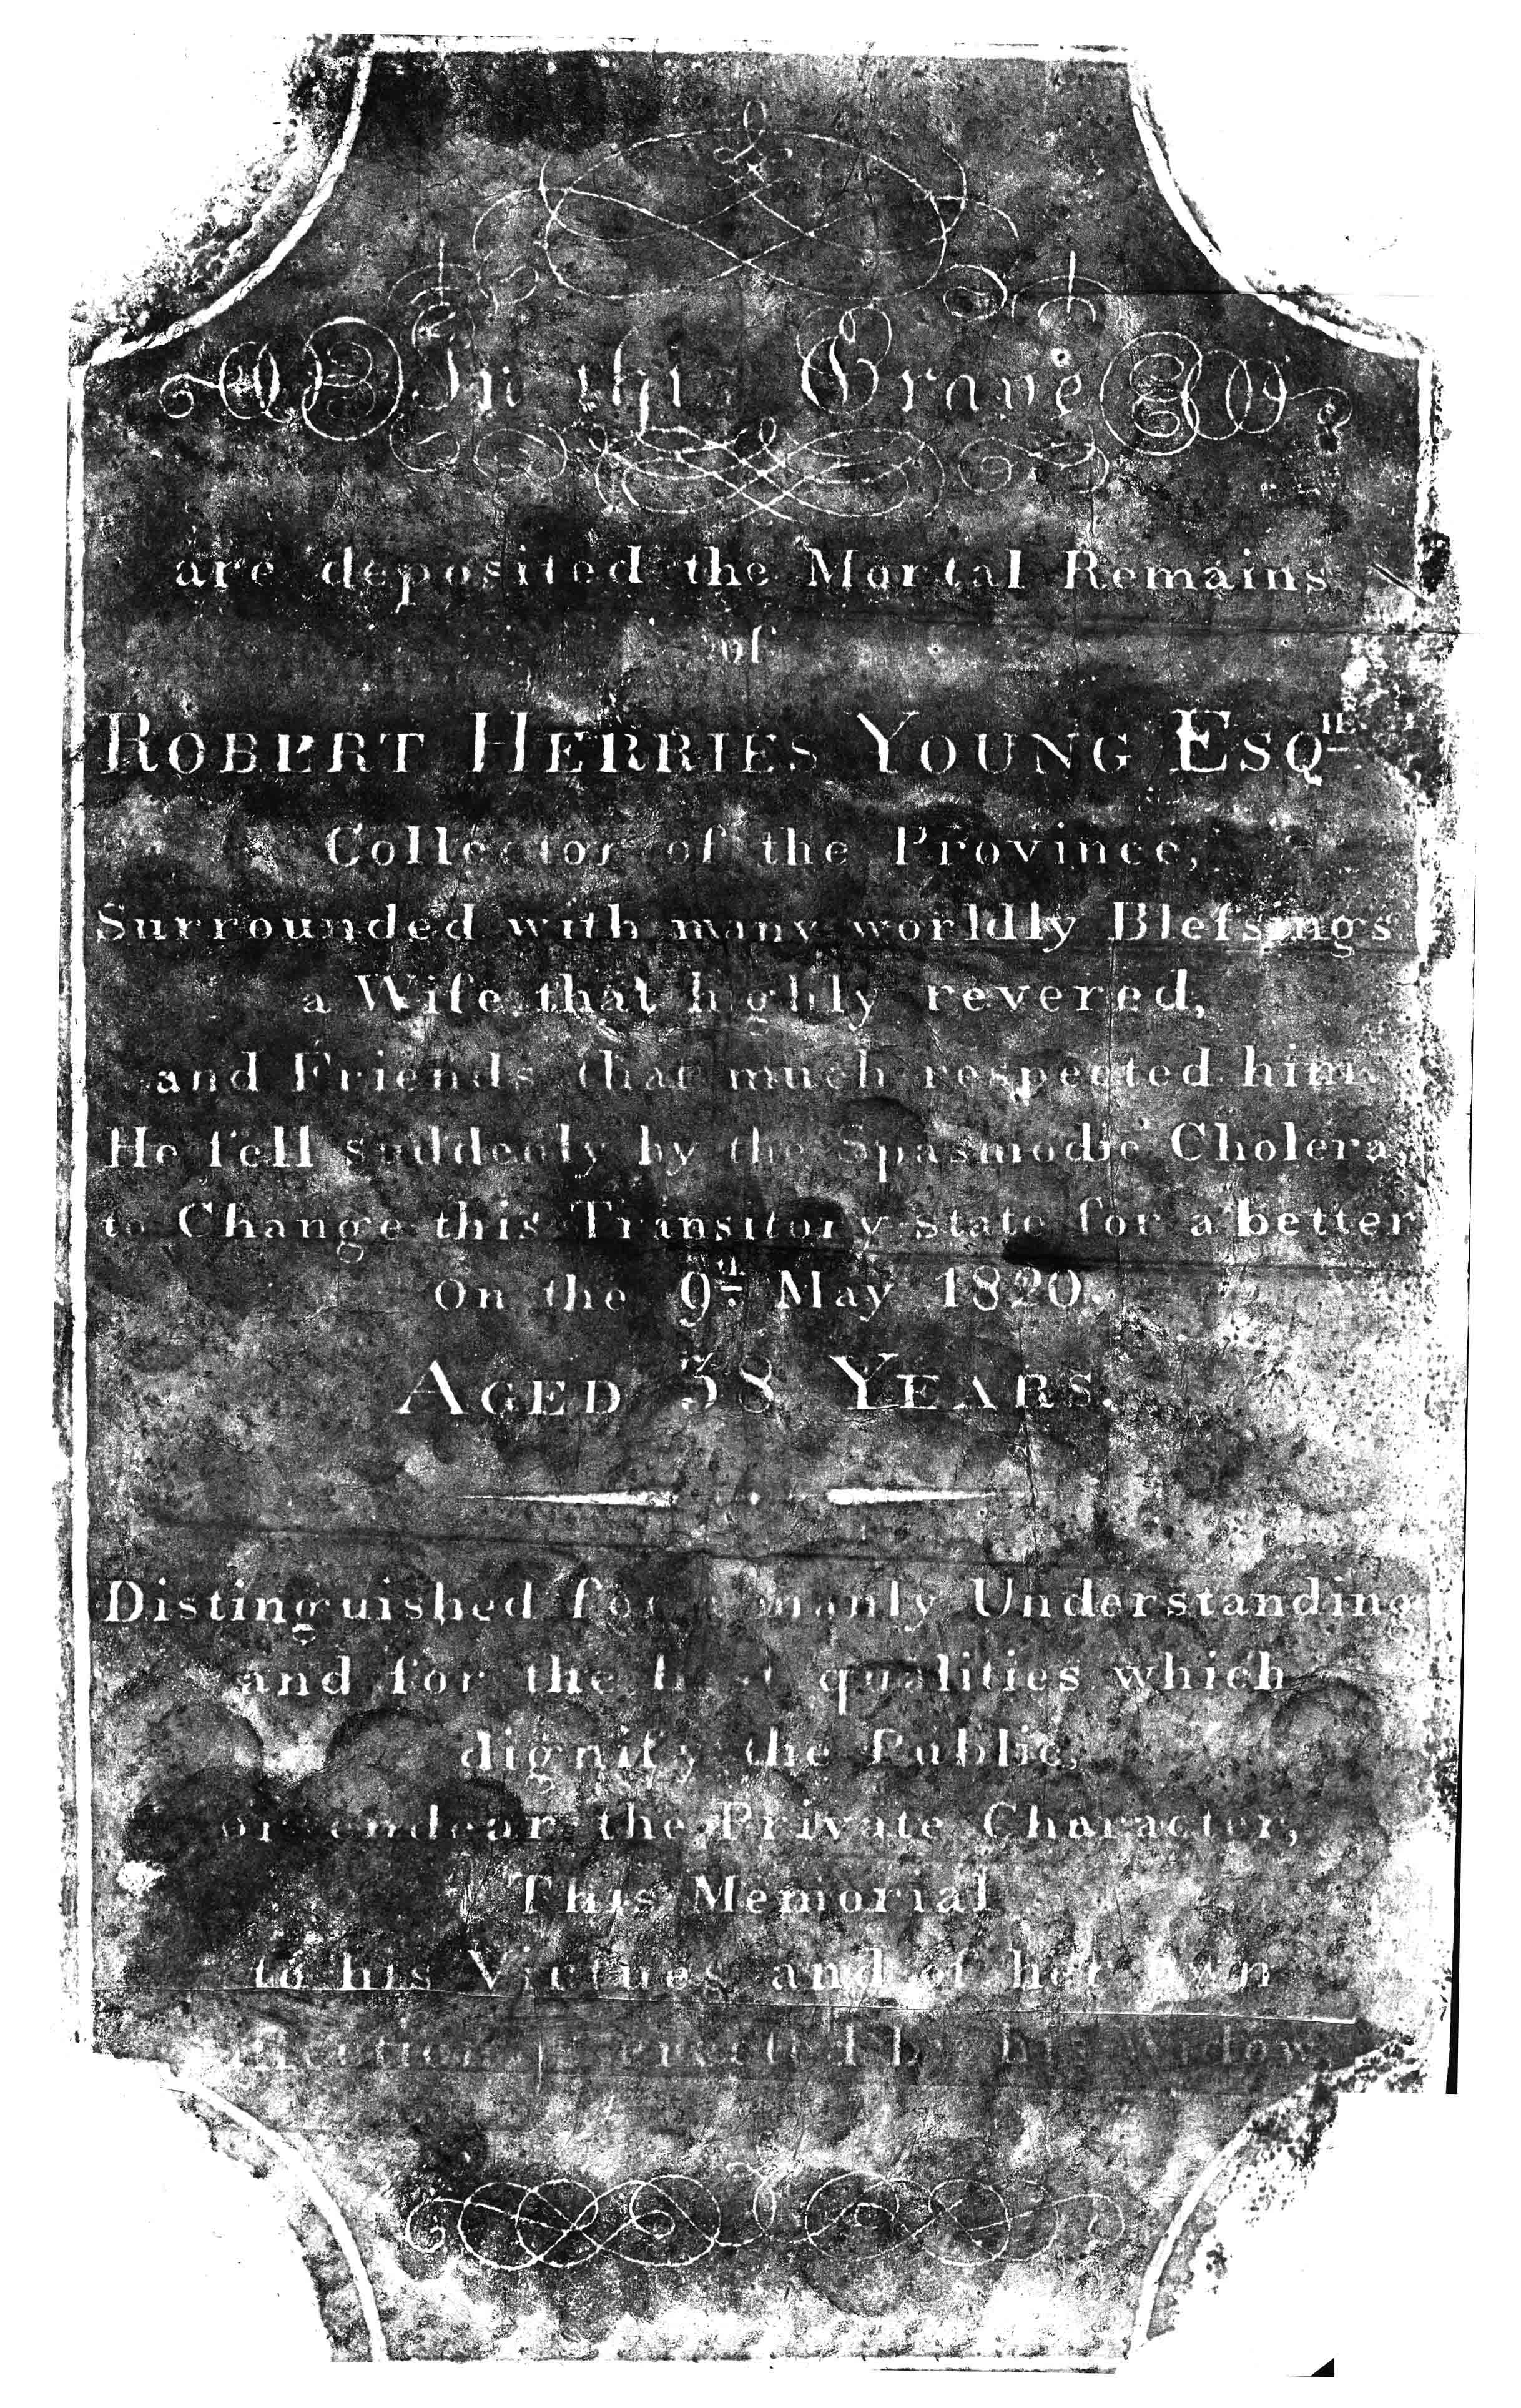 In this Grave
are deposited the Mortal Remains
of
ROBERT HERRIES YOUNG ESQ.RE
Collector of the Province,
Surrounded with many worldly Bleſsings
a Wife that highly revered,
and Friends that much respected him
He fell suddenly by the Spasmodic Cholera,
to Change this Transitory state for a better
On the 9th May 1820.
AGED 38 YEARS.
Distinguished for manly Understanding
and for the best qualities which
dignify the Public,
or endear the Private Character,
This Memorial
to his Virtues and of her own
erected by his Widow